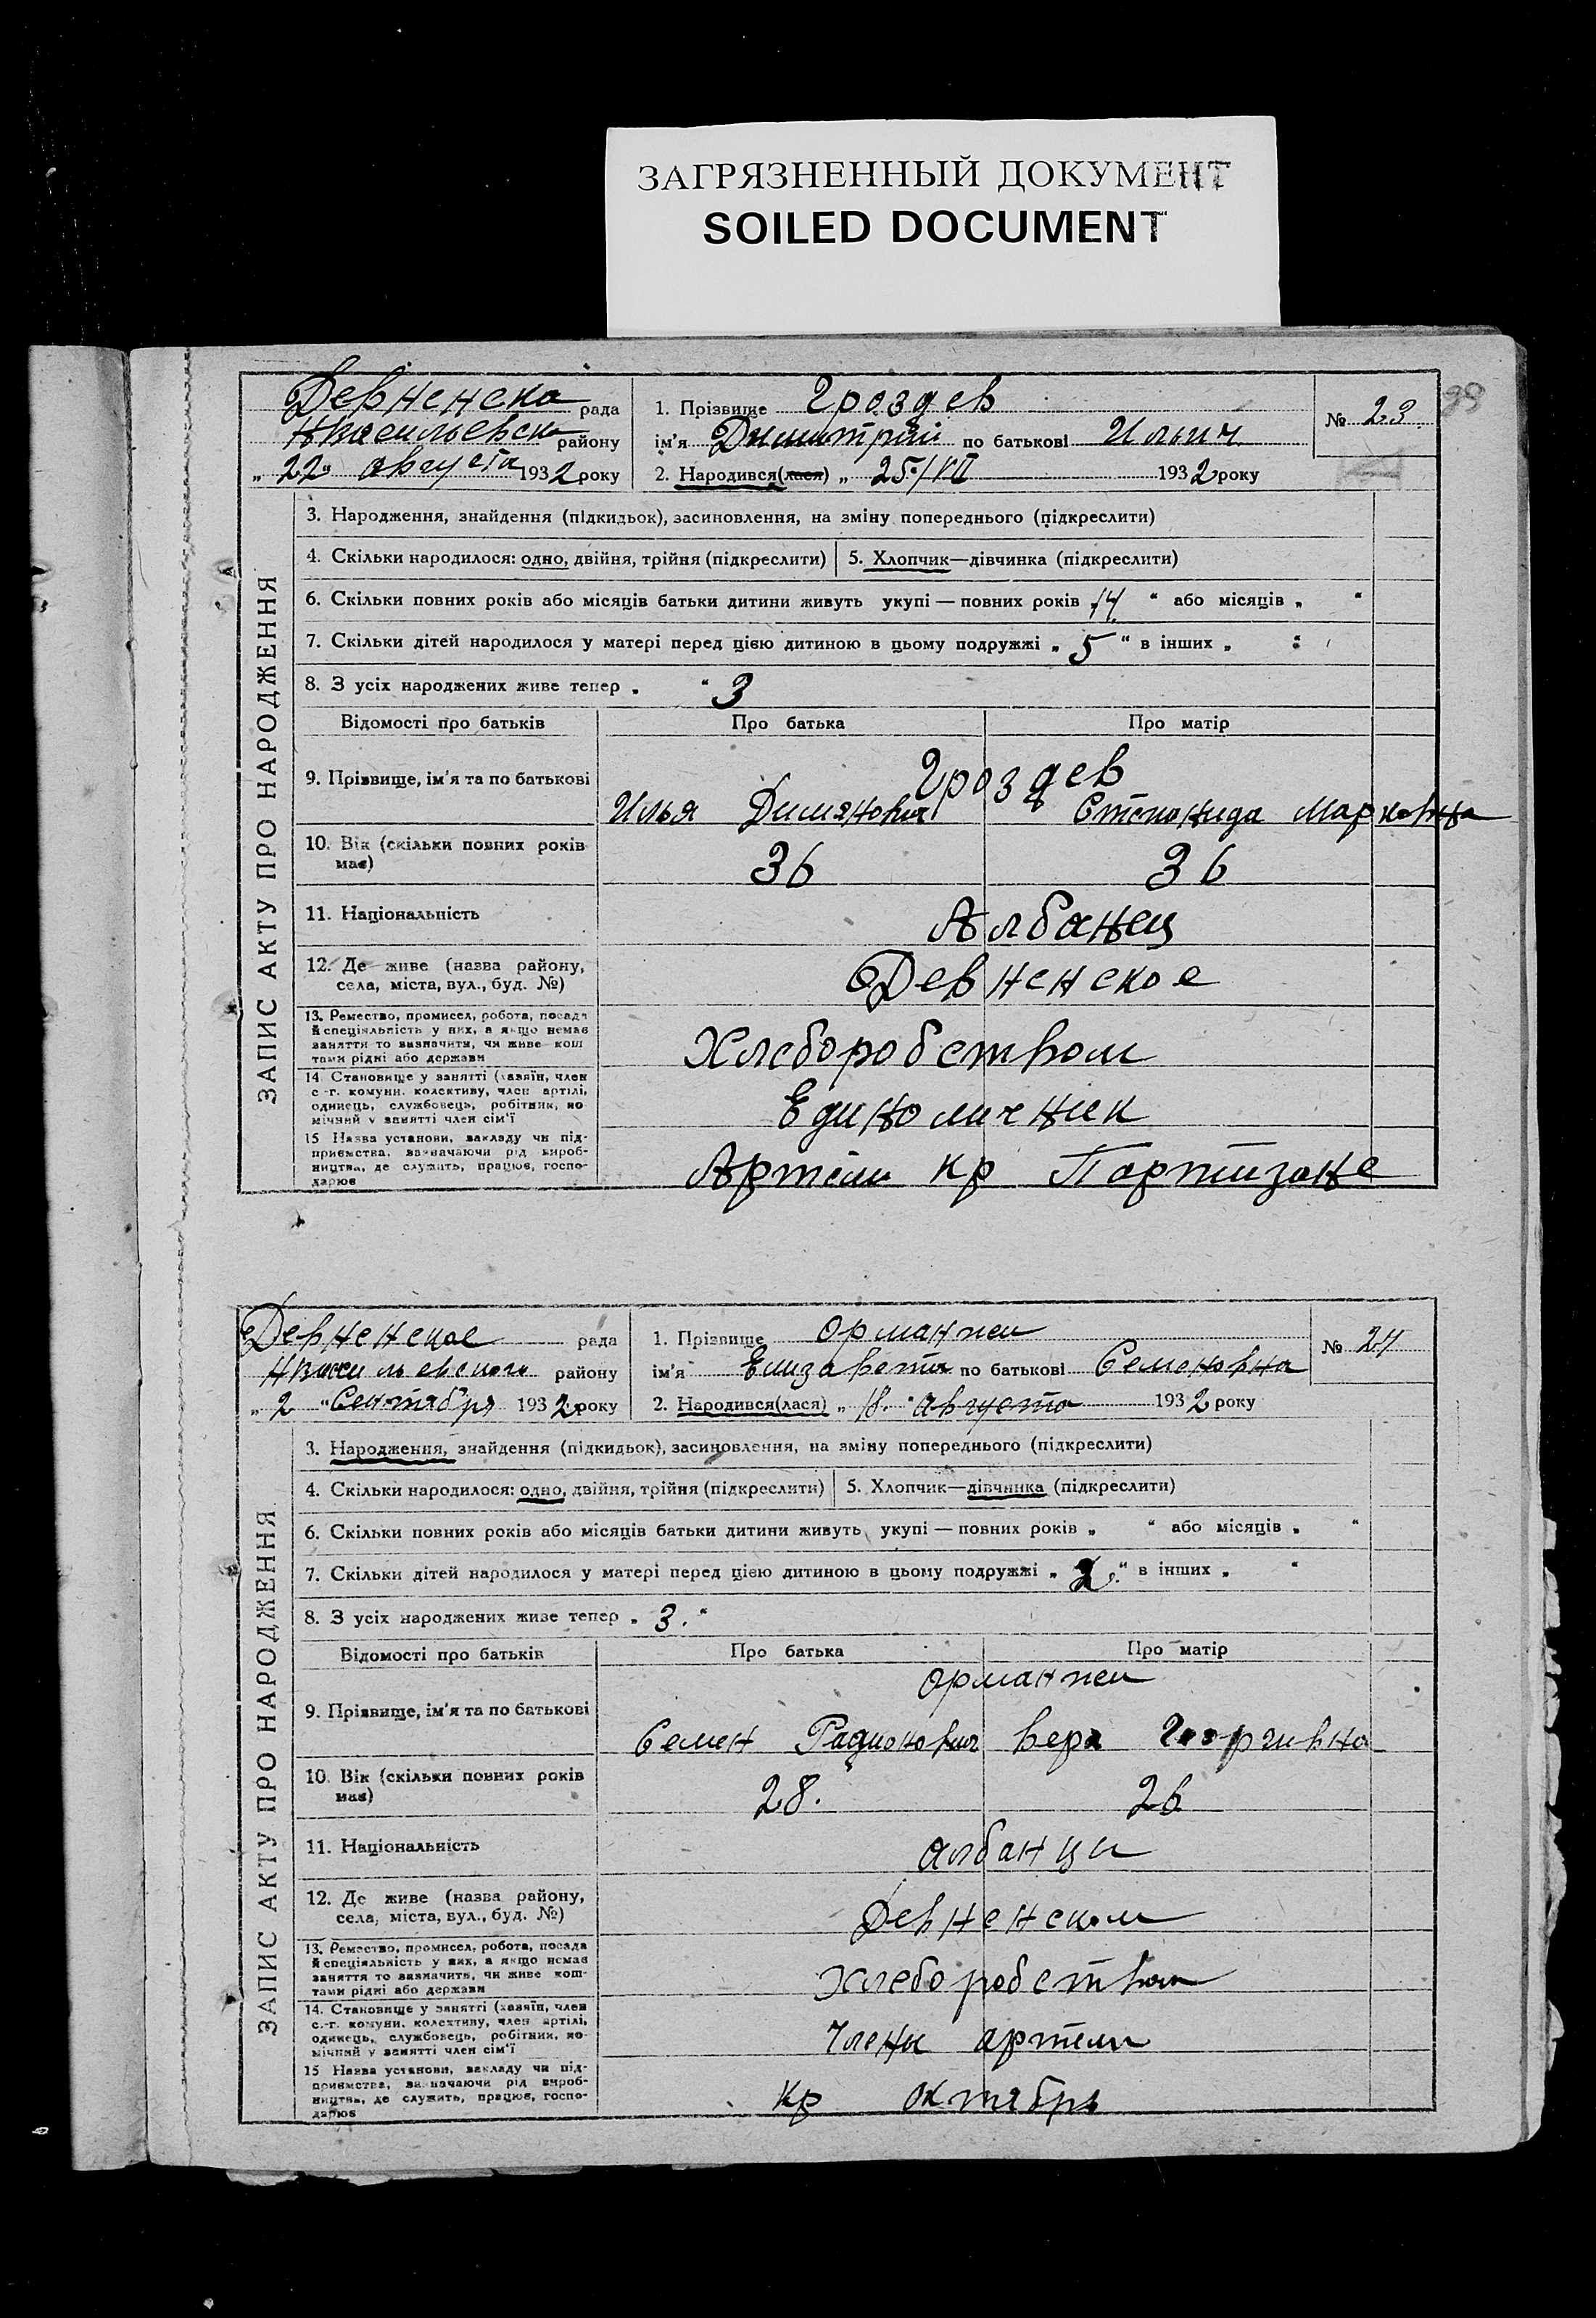 ЗАГРЯЗНЕННЫЙ ДОКУМЕНТ
SOILED DOCUMENT
99
Девненска рада
Нвасильевск району
„22“ августа 1932 року
1. Прізвище Гроздев
ім'я Димитрий по батькові Ильич
2. Народився(лася) „25/VII 1932 року
№ 23
ЗАПИС АКТУ ПРО НАРОДЖЕННЯ
3. Народження, знайдення (підкидьок), засиновлення, на зміну попереднього (підкреслити)
4. Скільки народилося: одно, двійня, трійня (підкреслити) 5. Хлопчик—дівчинка (підкреслити)
6. Скільки повних років або місяців батьки дитини живуть укупі — повних років „14“ або місяців „ “
7. Скільки дітей народилося у матері перед цією дитиною в цьому подружжі „5“ в інших „ “
8. З усіх народжених живе тепер „ “ 3
Відомості про батьків Про батька Про матір
9. Прізвище, ім'я та по батькові
Гроздев
Илья Димянович Степонида Марковна
10. Вік (скільки повних років
має)
36 36
11. Національність Албанец
12. Де живе (назва району,
села, міста, вул., буд. №)
Девненское
13. Ремество, промисел, робота, посада
й спеціяльність у них, а якщо немає
заняття то зазначити, чи живе кош
тами рідні або держави
Хлеборобством
14. Становище у занятті (хазяїн, член
с.-г. комуни, колективу, член артілі,
одинець, службовець, робітник, по
мічний у занятті член сім'ї
Единоличник
15 Назва установи, закладу чи під-
приємства, зазначаючи рід вироб-
ництва, де служить, працює, госпо-
дарює
Артели кр Партизане
Девненское рада
Нвасильевского району
„2“ Сентября 1932 року
1. Прізвище Орманжи
ім'я Елизавета по батькові Семеновна
2. Народився(лася) „18.“ Августа 1932 року
№ 24
ЗАПИС АКТУ ПРО НАРОДЖЕННЯ
3. Народження, знайдення (підкидьок), засиновлення, на зміну попереднього (підкреслити)
4. Скільки народилося: одно, двійня, трійня (підкреслити) 5. Хлопчик—дівчинка (підкреслити)
6. Скільки повних років або місяців батьки дитини живуть укупі — повних років „ “ або місяців „ “
7. Скільки дітей народилося у матері перед цією дитиною в цьому подружжі „2.“ в інших „ “
8. З усіх народжених живе тепер „3.“
Відомості про батьків Про батька Про матір
9. Прізвище, ім'я та по батькові
Орманжи
Семен Радионович Вера Георгивна
10. Вік (скільки повних років
має)
28. 26
11. Національність албанци
12. Де живе (назва району,
села, міста, вул., буд. №)
Девненском
13. Ремество, промисел, робота, посада
й спеціяльність у них, а якщо немає
заняття то зазначити, чи живе кош-
тами рідні або держави
Хлеборобством
14. Становище у занятті (хазяїн, член
с.-г. комуни, колективу, член артілі,
одинець, службовець, робітник, по
мічний у занятті член сім'ї
Члены артели
15 Назва установи, закладу чи під-
приємства, зазначаючи рід вироб-
ництва, де служить, працює, госпо-
дарює
кр октябрь